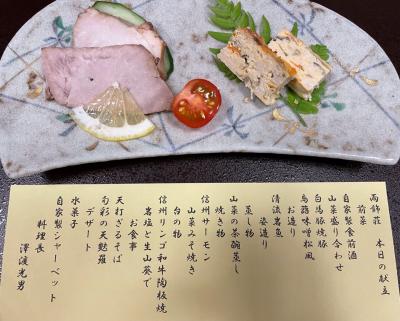 両錦荘　本日の献立
前菜
自家製食前酒
山菜盛り合わせ
白馬豚焼豚
鳥蕗味噌松風
お造り
清流岩魚
姿造り
蒸し物
山菜の茶碗蒸し
焼き物
信州サーモン
山菜みそ焼き
台の物
信州リンゴ和牛陶板焼
岩塩と生山葵で
お食事
天打ざるそば
旬彩の天麩羅
デザート
水菓子
自家製シャーベット
料理長
澤渡光男